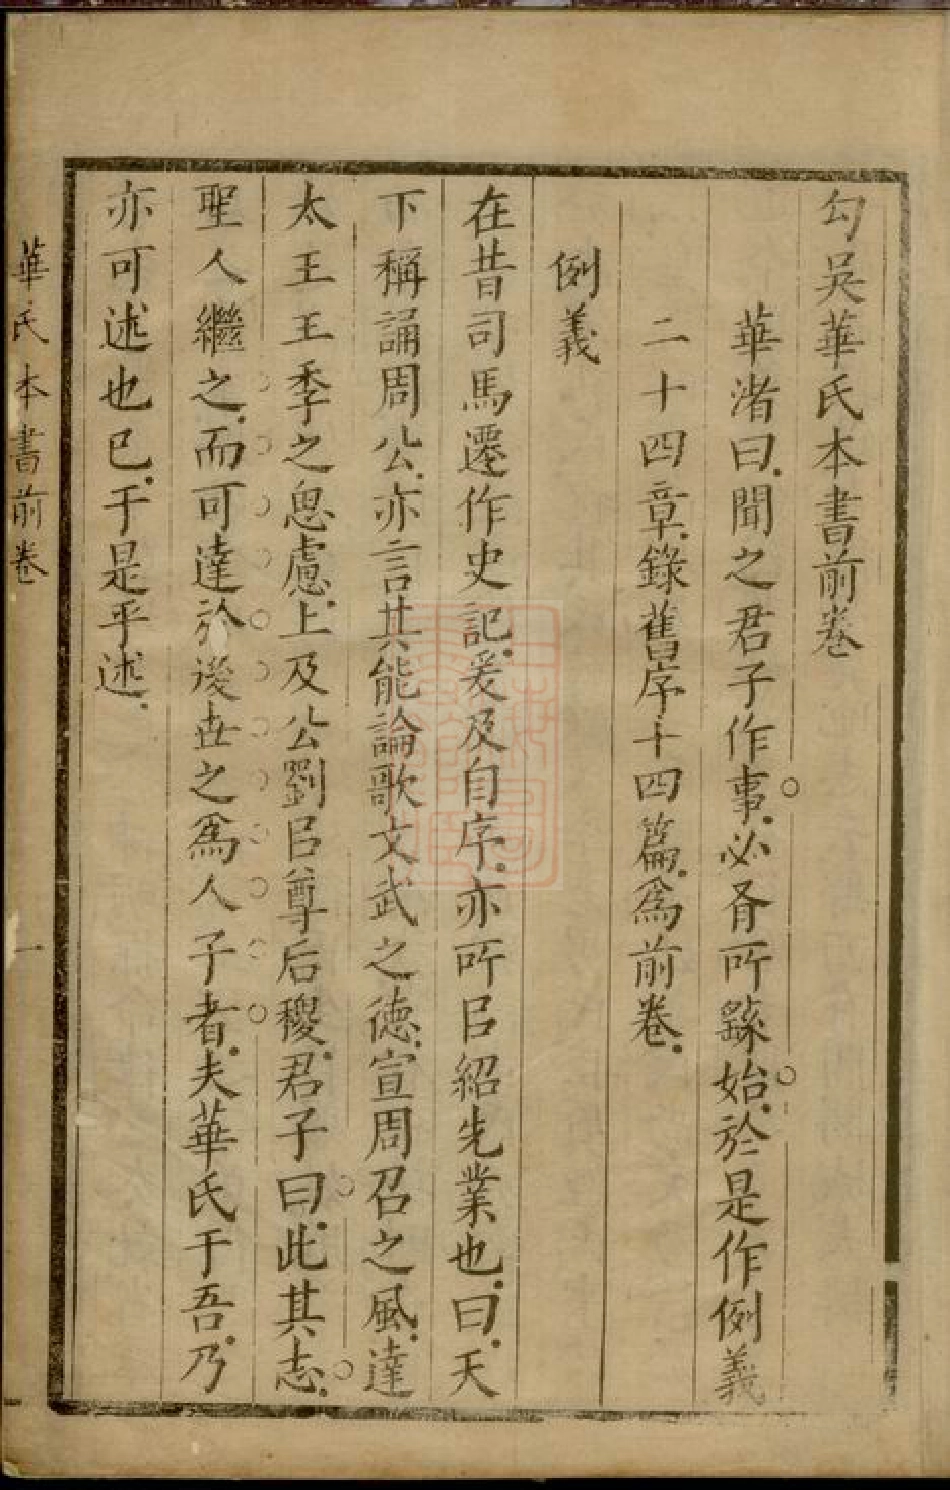 勾吳華氏本書前卷
華渚曰聞之君子作事必有所繇始於是作例義
二十四章錄舊序十四篇為前卷
例義
在昔司馬遷作史記爰及自序亦所㠯紹先業也曰天
下稱誦周公亦言其能論歌文武之德宣周召之風達
太王王季之思慮上及公劉㠯尊后稷君子曰此其志
聖人繼之而可達於後世之為人子者夫華氏于吾乃
亦可述也已于是乎述
華氏本書前卷
一